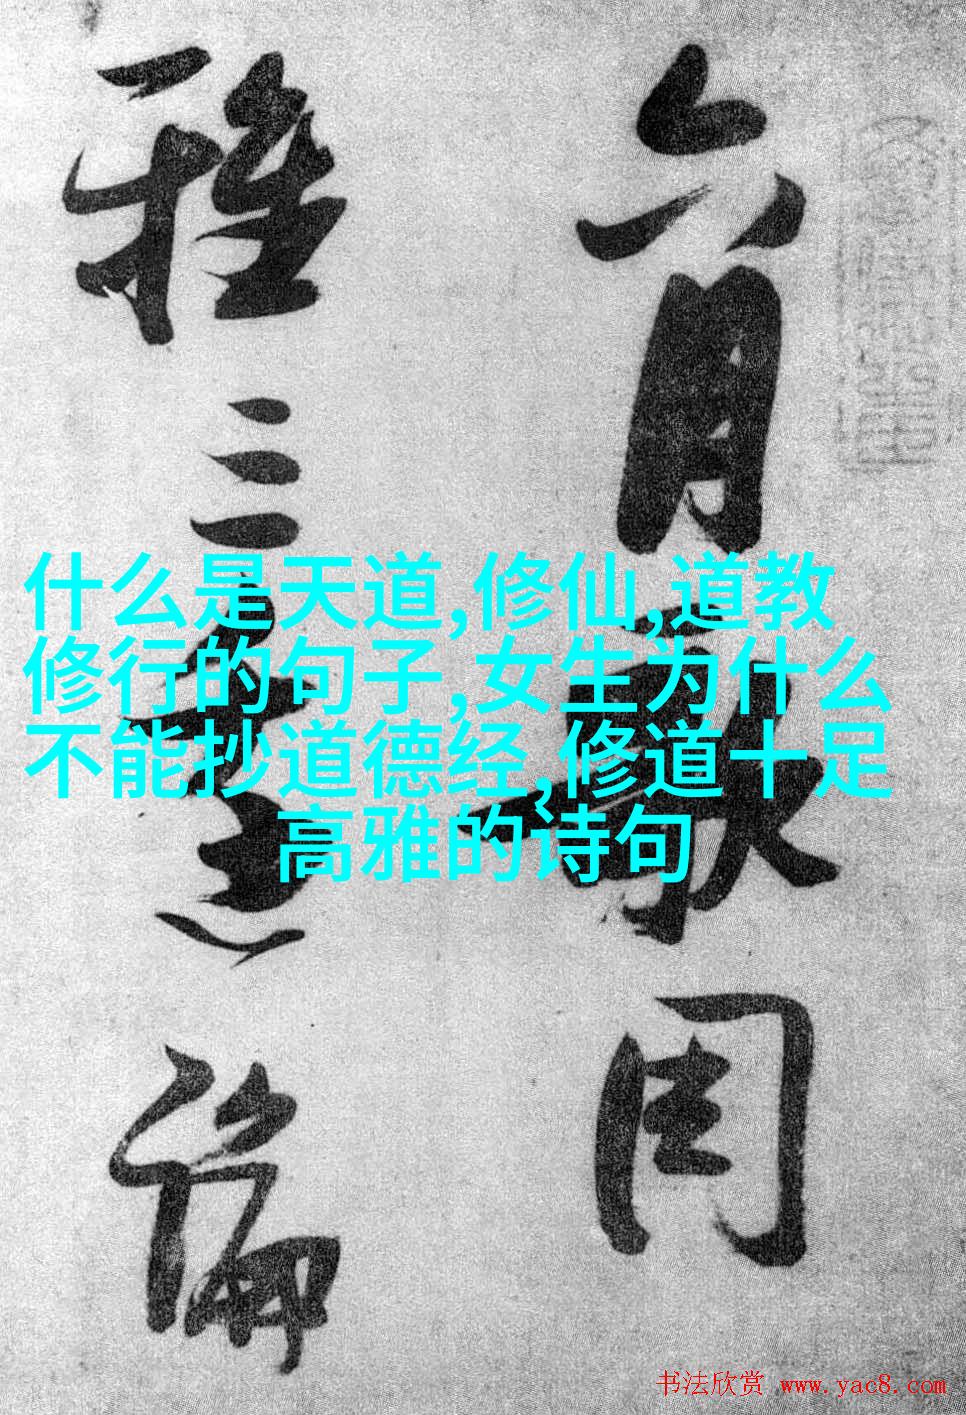 六月歌周
雅三論
什么是天道,修仙,道教
修行的句子,女生为什么
不能抄道德经,修道十足
高雅的诗句
书法欣赏 www.yac8.com